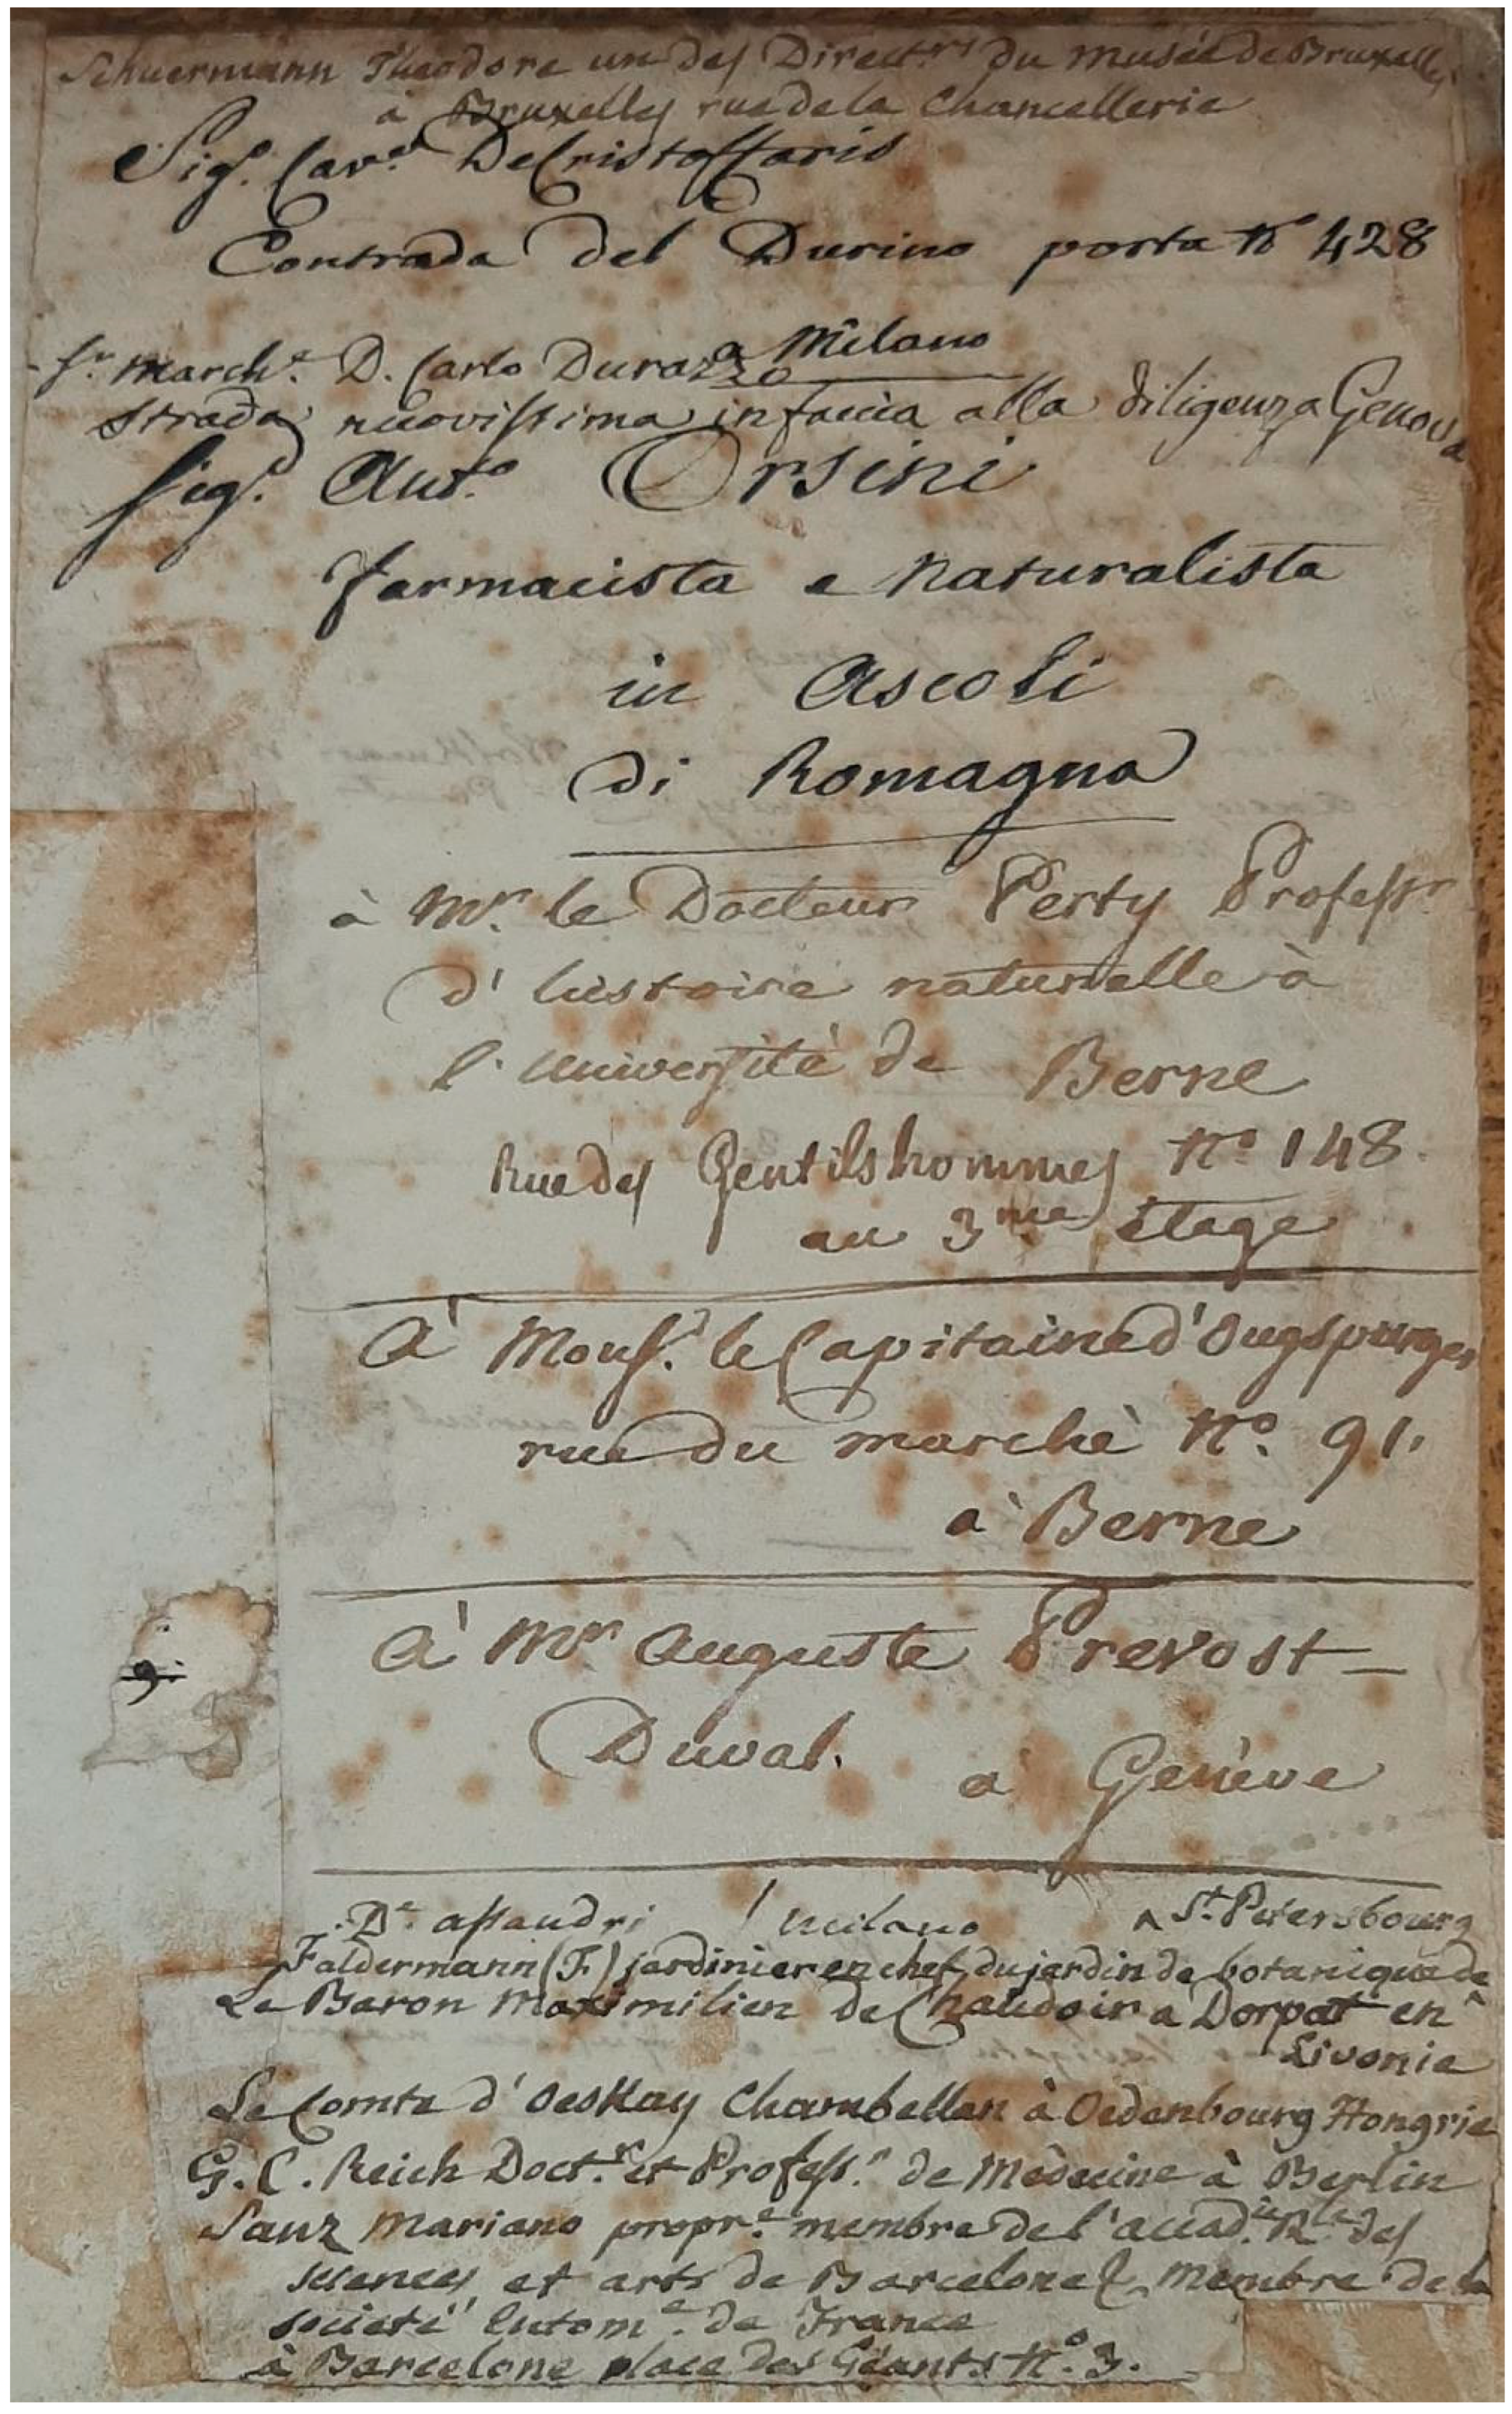 Schuermann Theodore un des Direct.rs du musée de Bruxelles
à Bruxelles rue de la Chancellerie
Sig.e Cav.e DeCristoffaris
Contrada del Durino porta No 428
a Milano
S.r March.e D. Carlo Durazzo
strada nuovissima in faccia alla diligenza Genova
Sig.e Ant.o Orsini
farmacista e naturalista
in Ascoli
di Romagna
à Mr. le Docteur Perty Professr.
d'histoire naturelle à
l'université de Berne
Rue des Gentilshommes No 148.
au 3me étage
À Mons.r le Capitaine d'Ougspurger
rue du marchè No. 91.
à Berne
À Mr. Auguste Prevost-
Duval. à Genève
9.
Dr. assandri Milano
^ St. Petersbourg
Faldermann (F.) jardinier en chef du jardin de botanique de ^
Le Baron Maximilien de Chaudoir a Dorpat en
Livonie
Le Comte d'Oeskay Chambellan à Oedenbourg Hongrie
G. C. Reich Doct.r et Profess.r de Mèdecine à Berlin
Sanz Mariano propr.e membre de l'accad.ie R.le des
sciences et arts de Barcelone & Membre de la
societé entom.e de France
à Barcelone place des Géants No. 3.